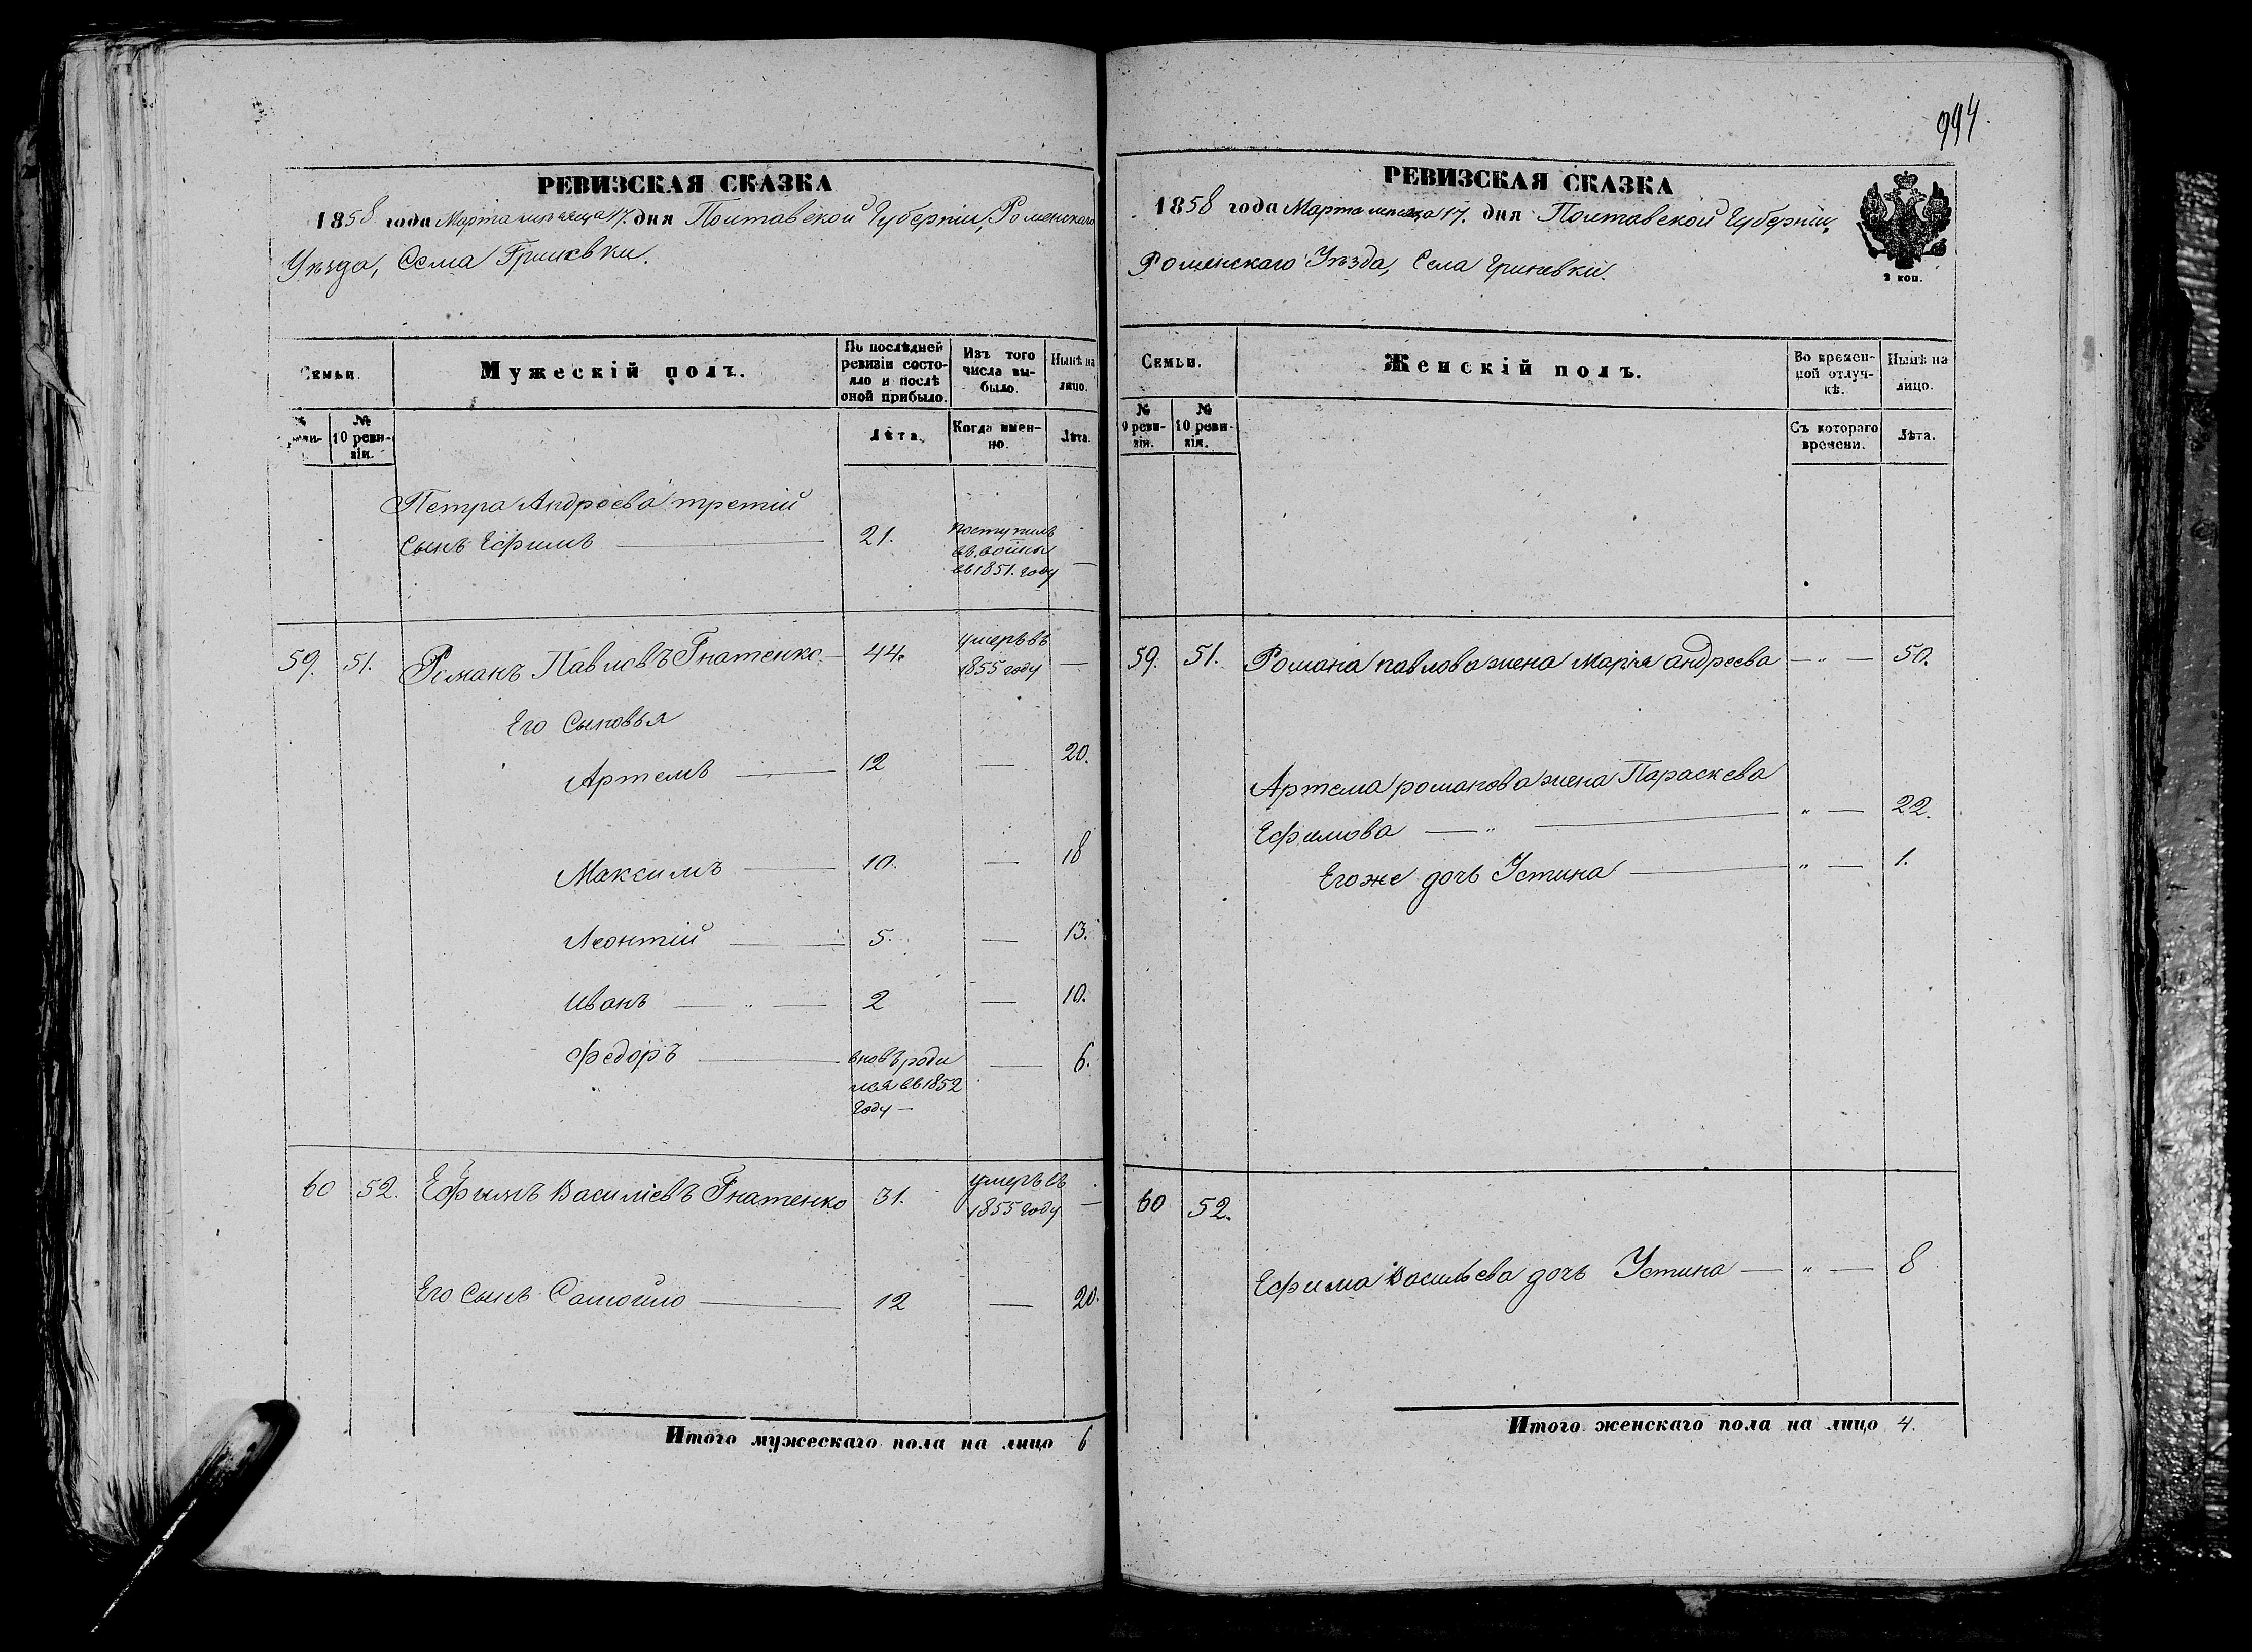 994.
РЕВИЗСКАЯ СКАЗКА
1858 года Марта месяца 17. дня Полтавской Губерніи, Роменскаго
Уѣзда, Села Гриневки.
Семьи.
Мужескій полъ.
По послѣдней ревизіи состояло и послѣ оной прибыло.
Изъ того числа выбыло.
Нынѣ на лицо.
№ 10 ревизіи.
Лѣта.
Когда именно.
Лѣта.
Петра Андреева третій
сынъ Ефимъ 21. поступилъ
въ 1851. году —
59. 51. Романъ Павловъ Гнатенко 44. умеръ въ
1855 году —
Его Сыновья
Артемъ — 12 — 20.
Максимъ — 10. — 18
Леонтій — 5. — 13.
Иванъ — „ — 2 — 10.
Федоръ — вновь роди — 6.
лся въ 1852
году —
60 52. Ефимъ Василіевъ Гнатенко 31. умеръ въ
1855 году —
Его Сынъ Самойло — 12 — 20.
Итого мужескаго пола на лицо 6
РЕВИЗСКАЯ СКАЗКА
1858 года Марта месяца 17. дня Полтавской Губерніи,
Роменскаго Уѣзда, Села Гриневки.
2 коп.
Семьи.
Женскій полъ.
Во временной отлучкѣ.
Нынѣ на лицо.
№ 9 ревизіи.
№ 10 ревизіи.
Съ котораго времени.
Лѣта.
59. 51. Романа павлова жена Марія андреева — „ — 50.
Артема романова жена Параскева
Ефимова — „ — „ — 22.
Егоже дочь Устина — „ — 1.
60 52.
Ефима Васильева дочь Устина — „ — 8
Итого женскаго пола на лицо 4.